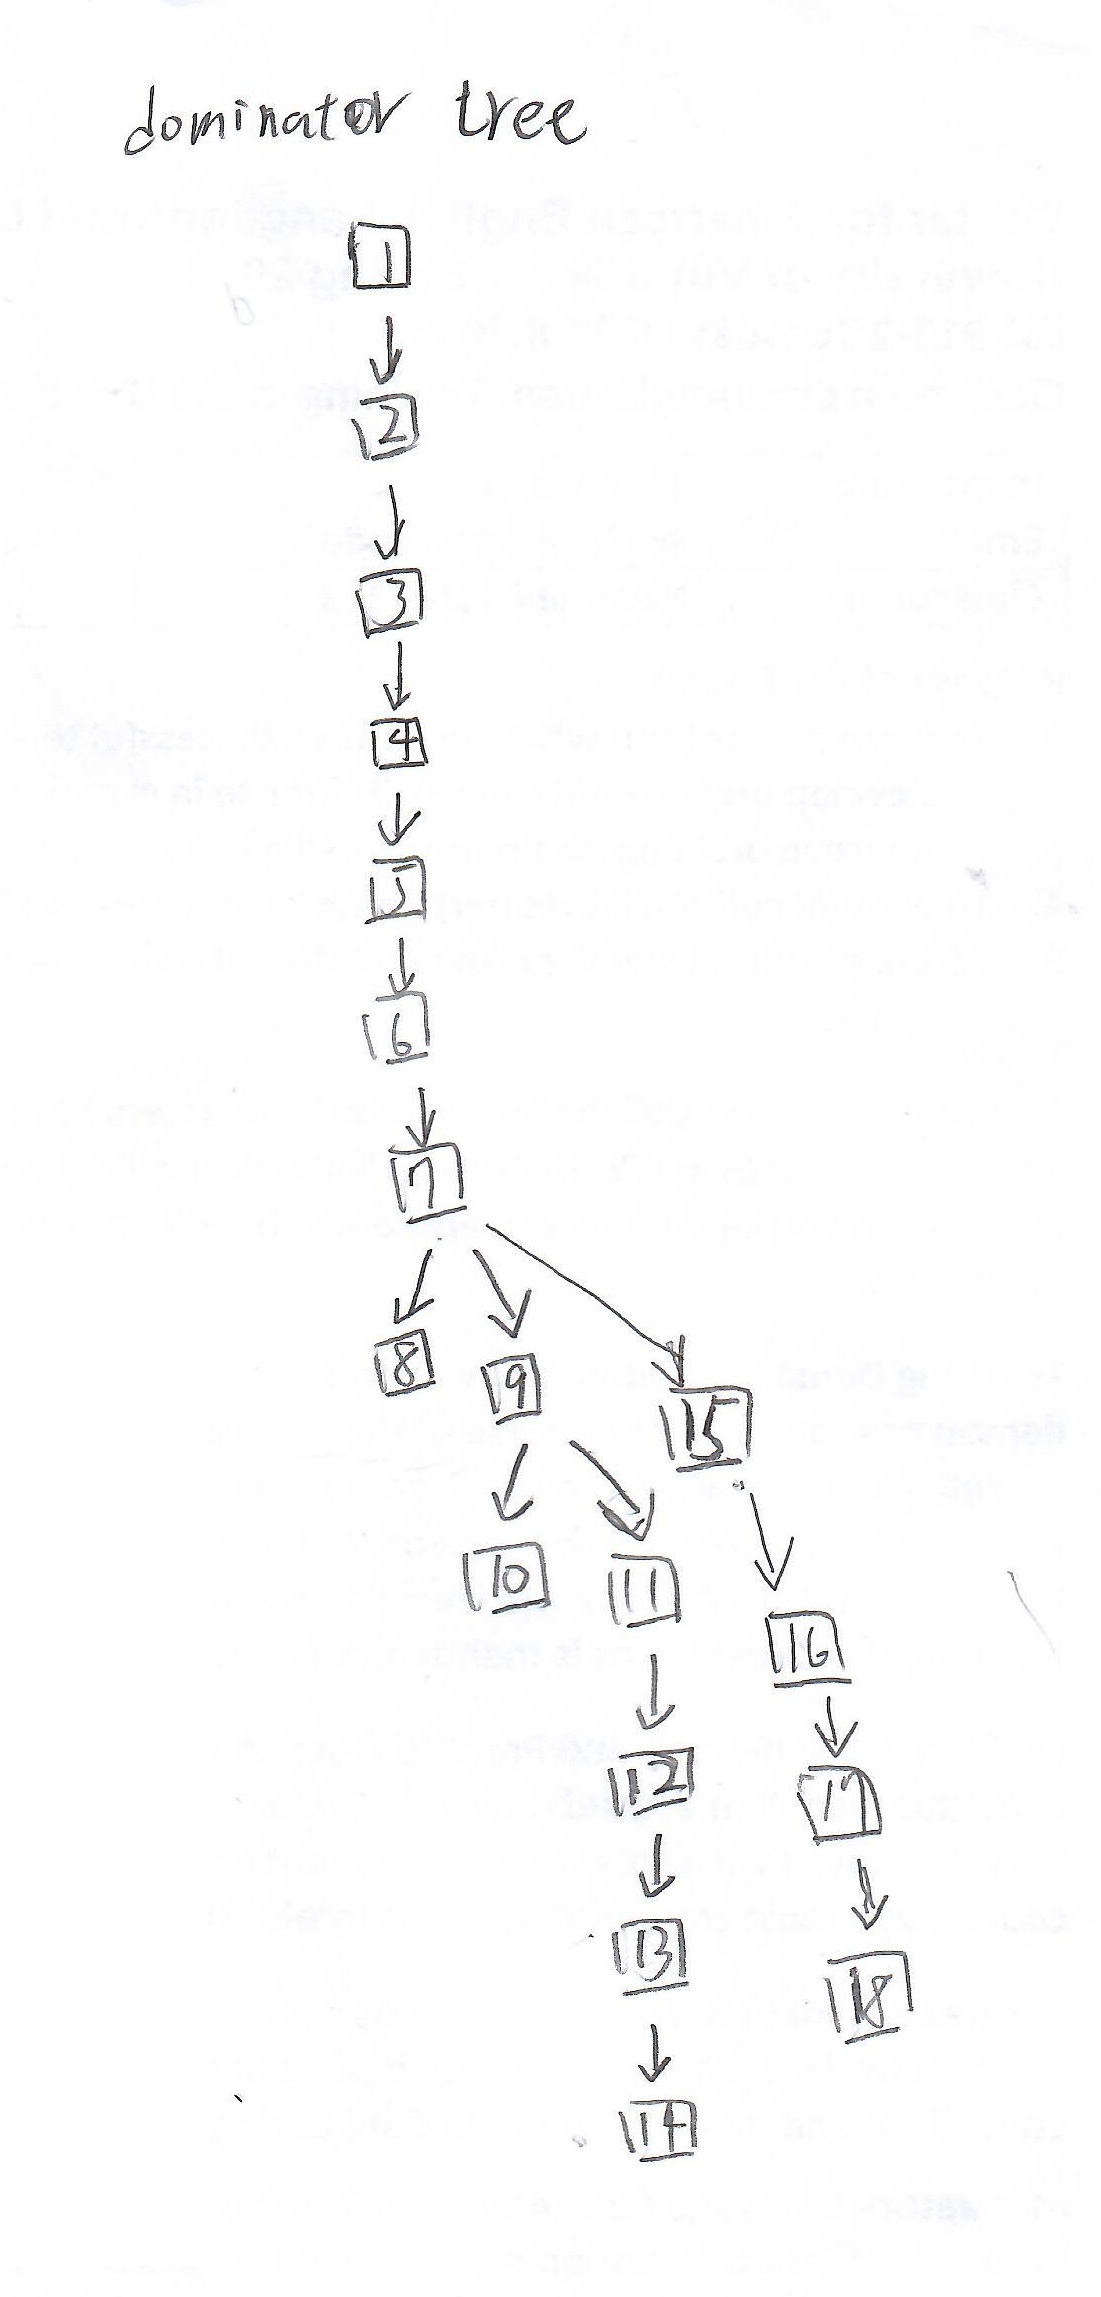 dominator tree
1
2
3
4
5
6
7
8 9
15
10 11
16
12
17
13
18
14